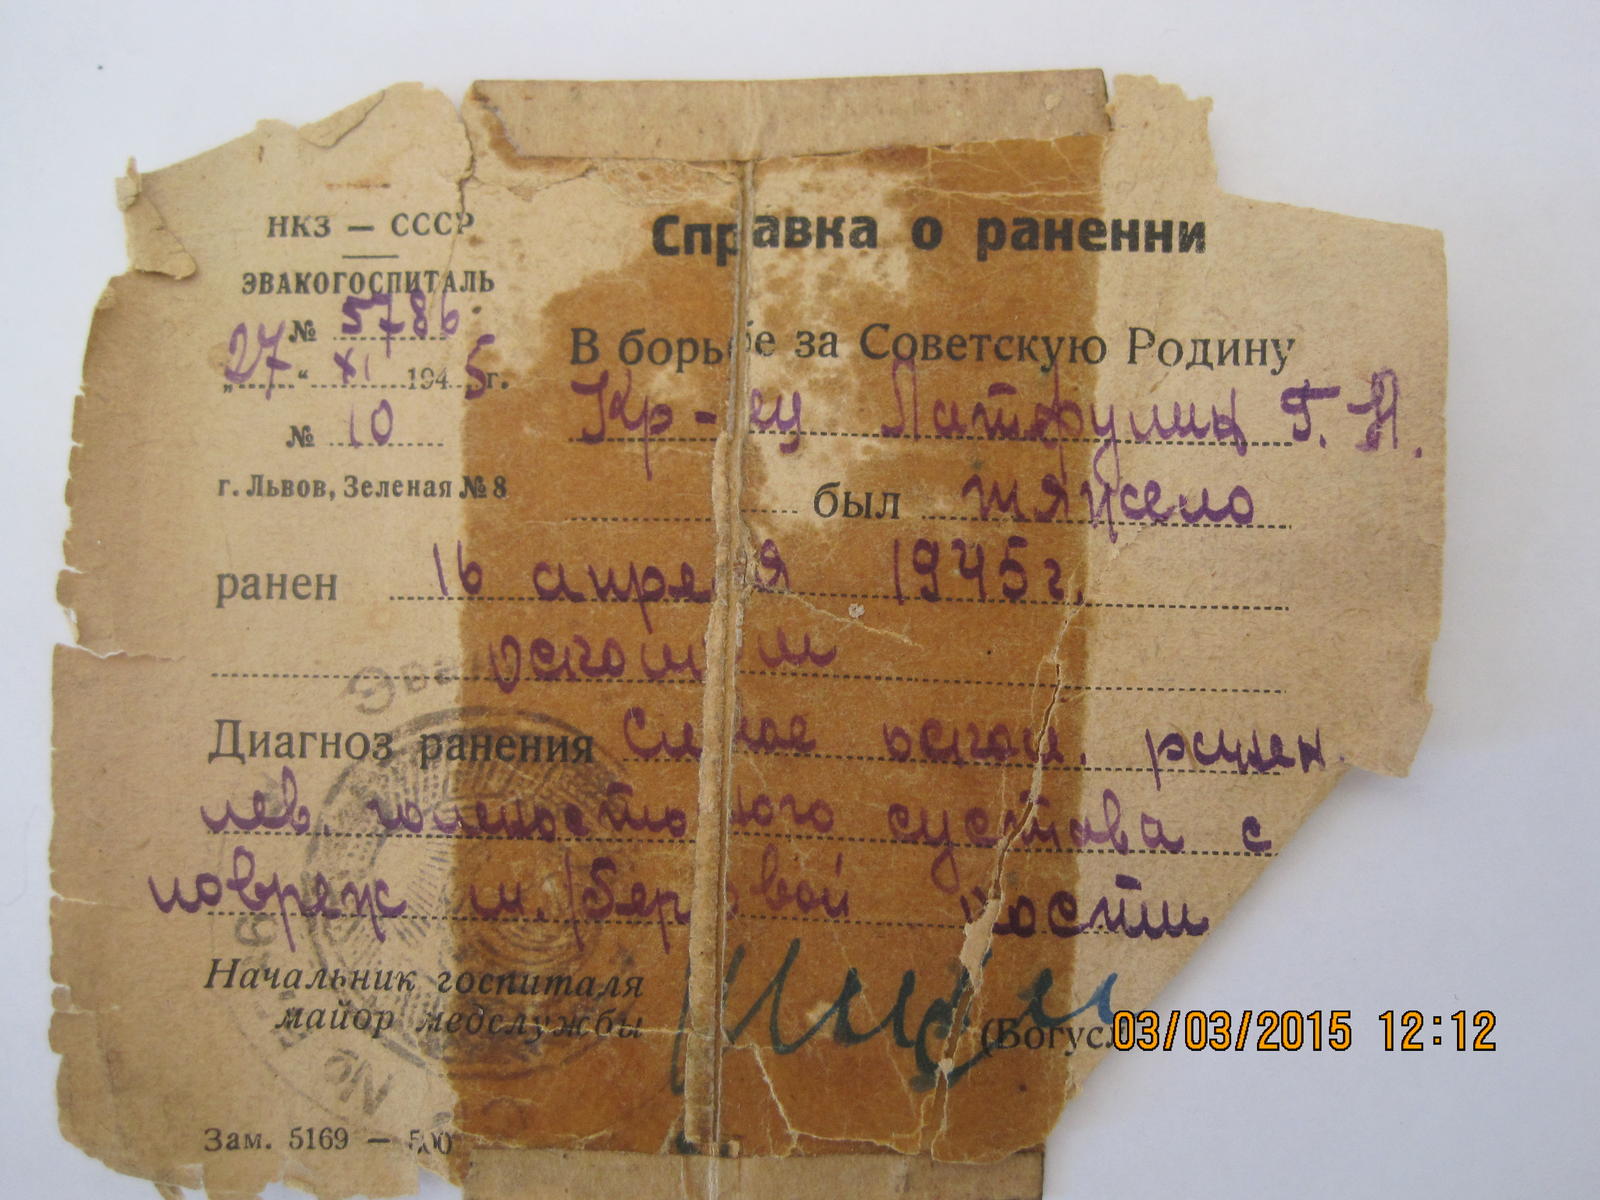 НКЗ — СССР
ЭВАКОГОСПИТАЛЬ
№ 5786
„27“ XI 1945 г.
№ 10
г. Львов, Зеленая № 8
Справка о раненни
В борьбе за Советскую Родину
Кр-ец Латфулин Г. Н.
был тяжело
ранен 16 апреля 1945 г.
Диагноз ранения Слепое оскол. ранен.
лев. голеностопного сустава с
повреж м./берцовой кости
Начальник госпиталя
майор медслужбы
(Богусл
Зам. 5169 — 500
Эва
№
03/03/2015 12:12